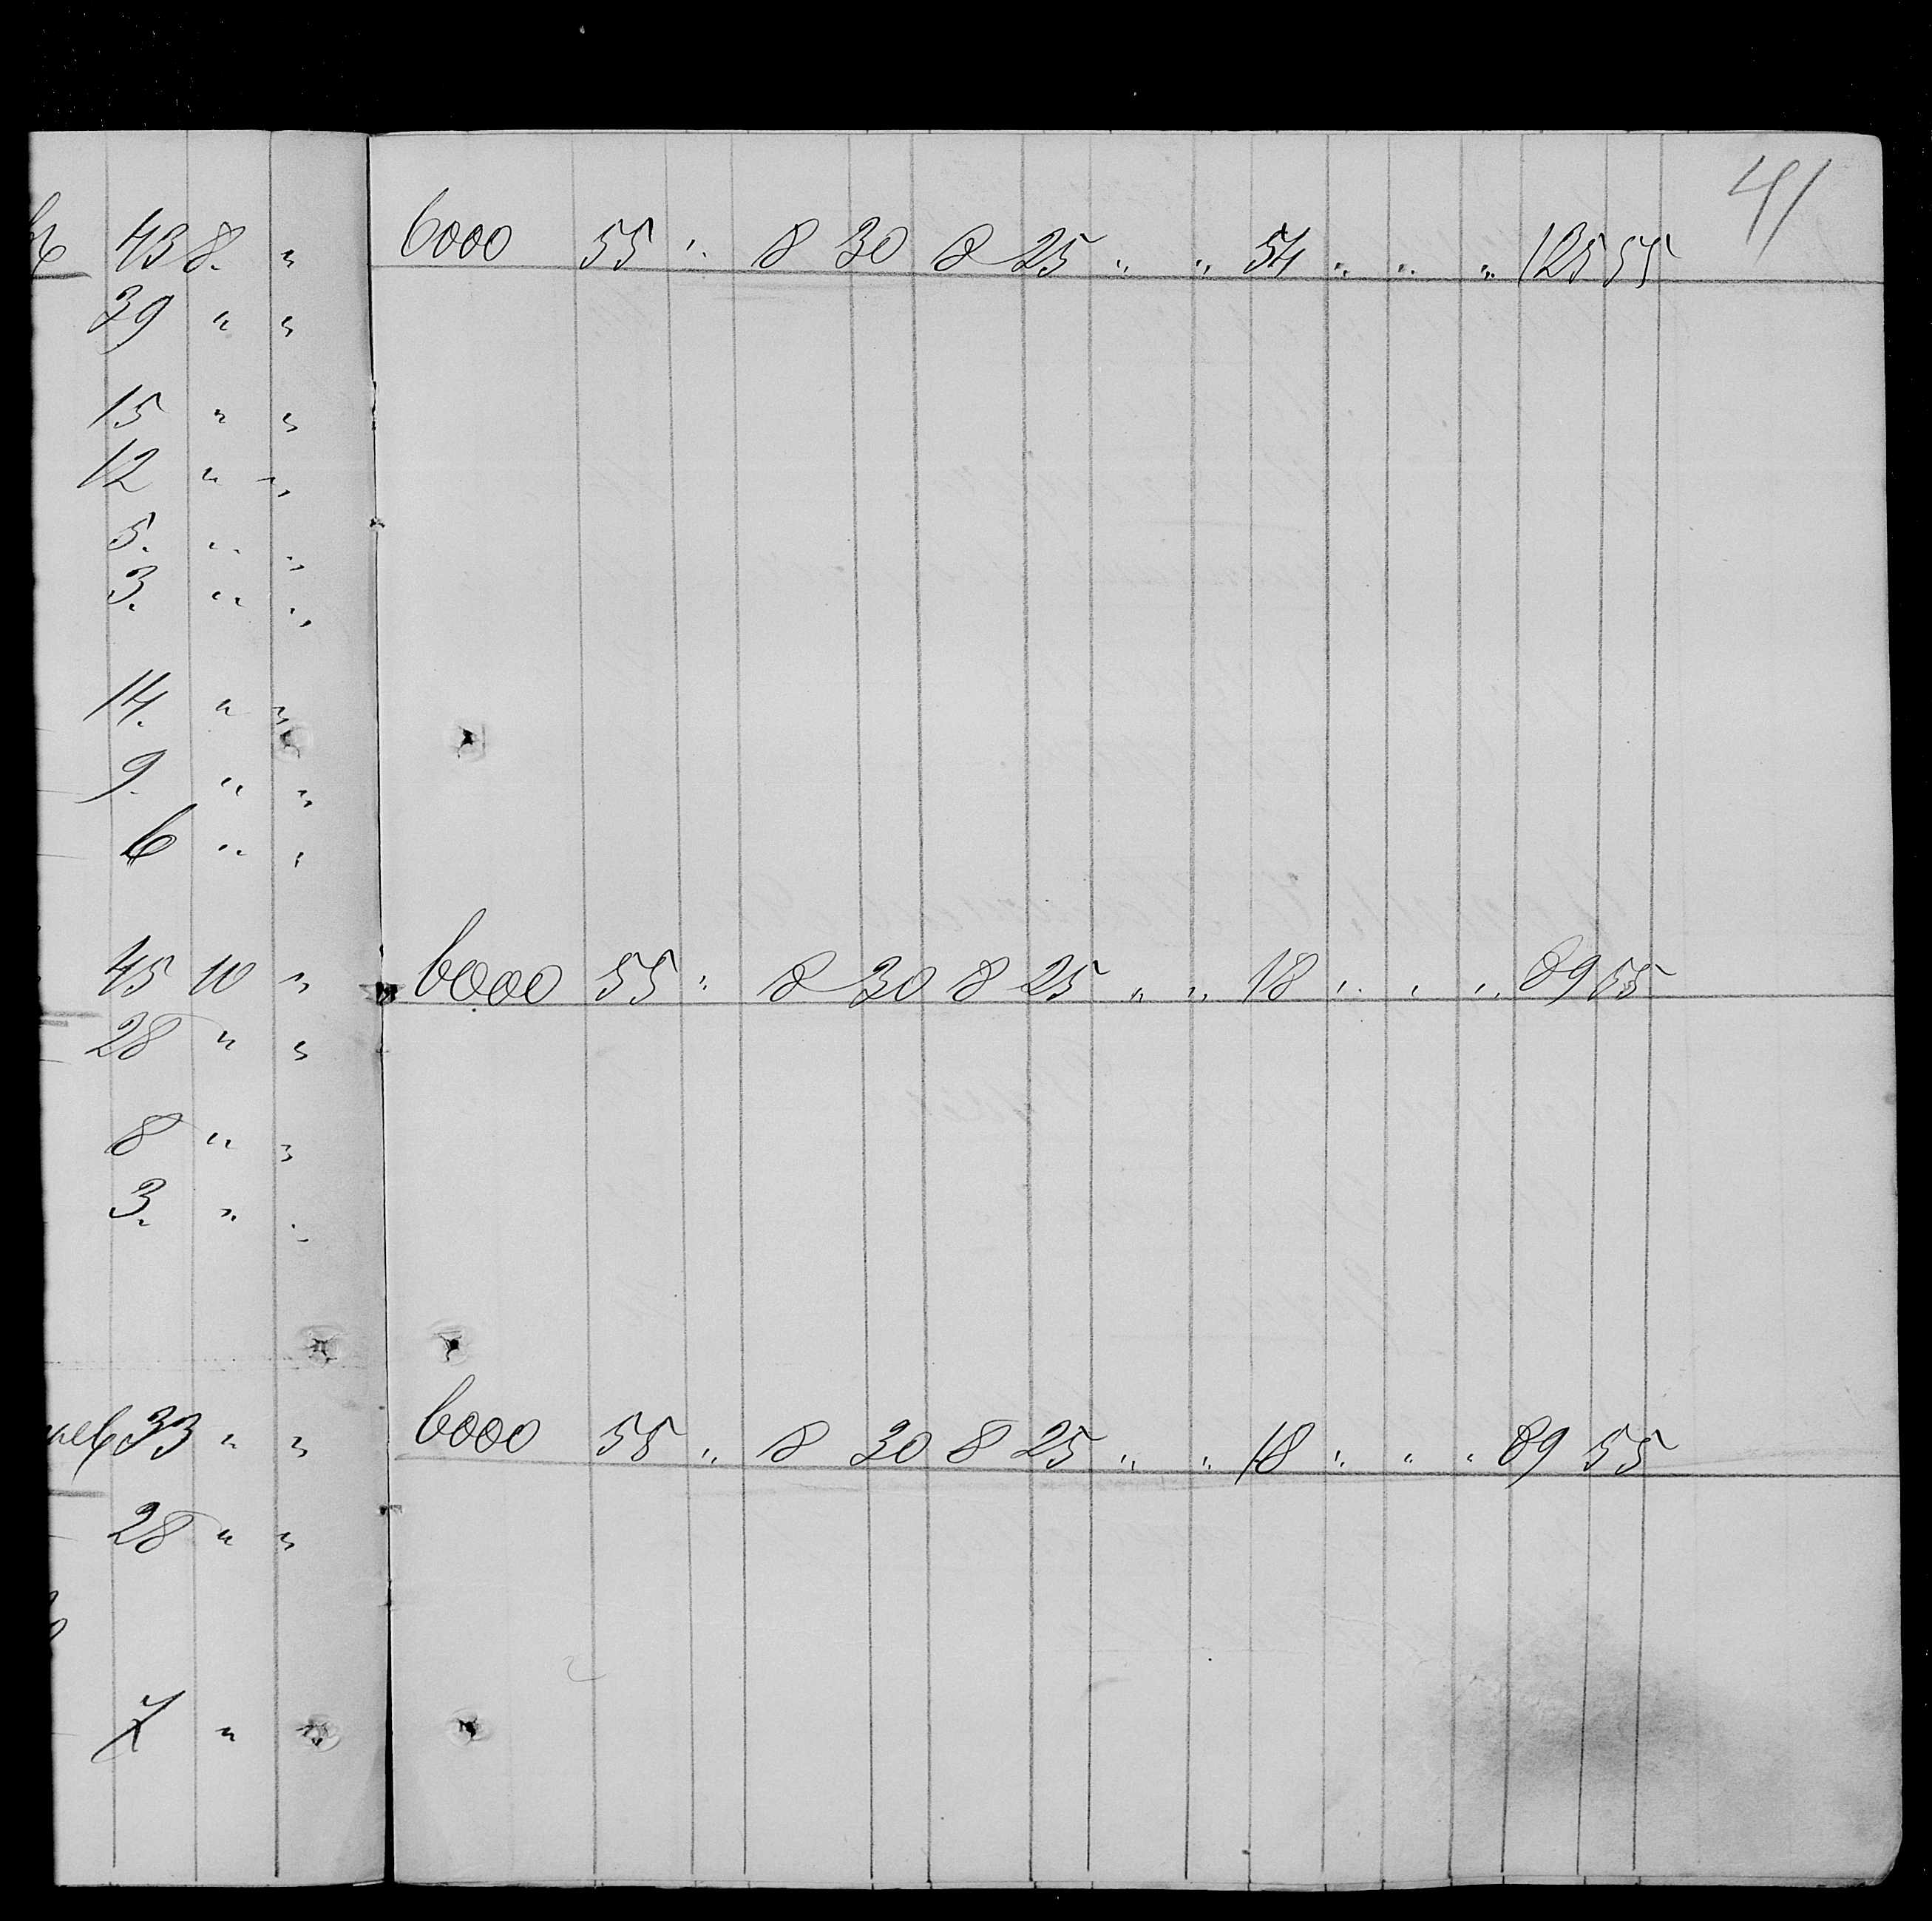 41
43 8. " 6000 55 " 8 30 8 25 " " 54 " " " 125 55
39 " "
15 " "
12 " "
5. " "
3. " "
14. " "
9. " "
6 " "
45 10 " 6000 55 " 8 30 8 25 " " 18 " " " 89 55
28 " "
8 " "
3. " "
33 " " 6000 55 " 8 30 8 25 " " 18 " " " 89 55
28 " "
" "